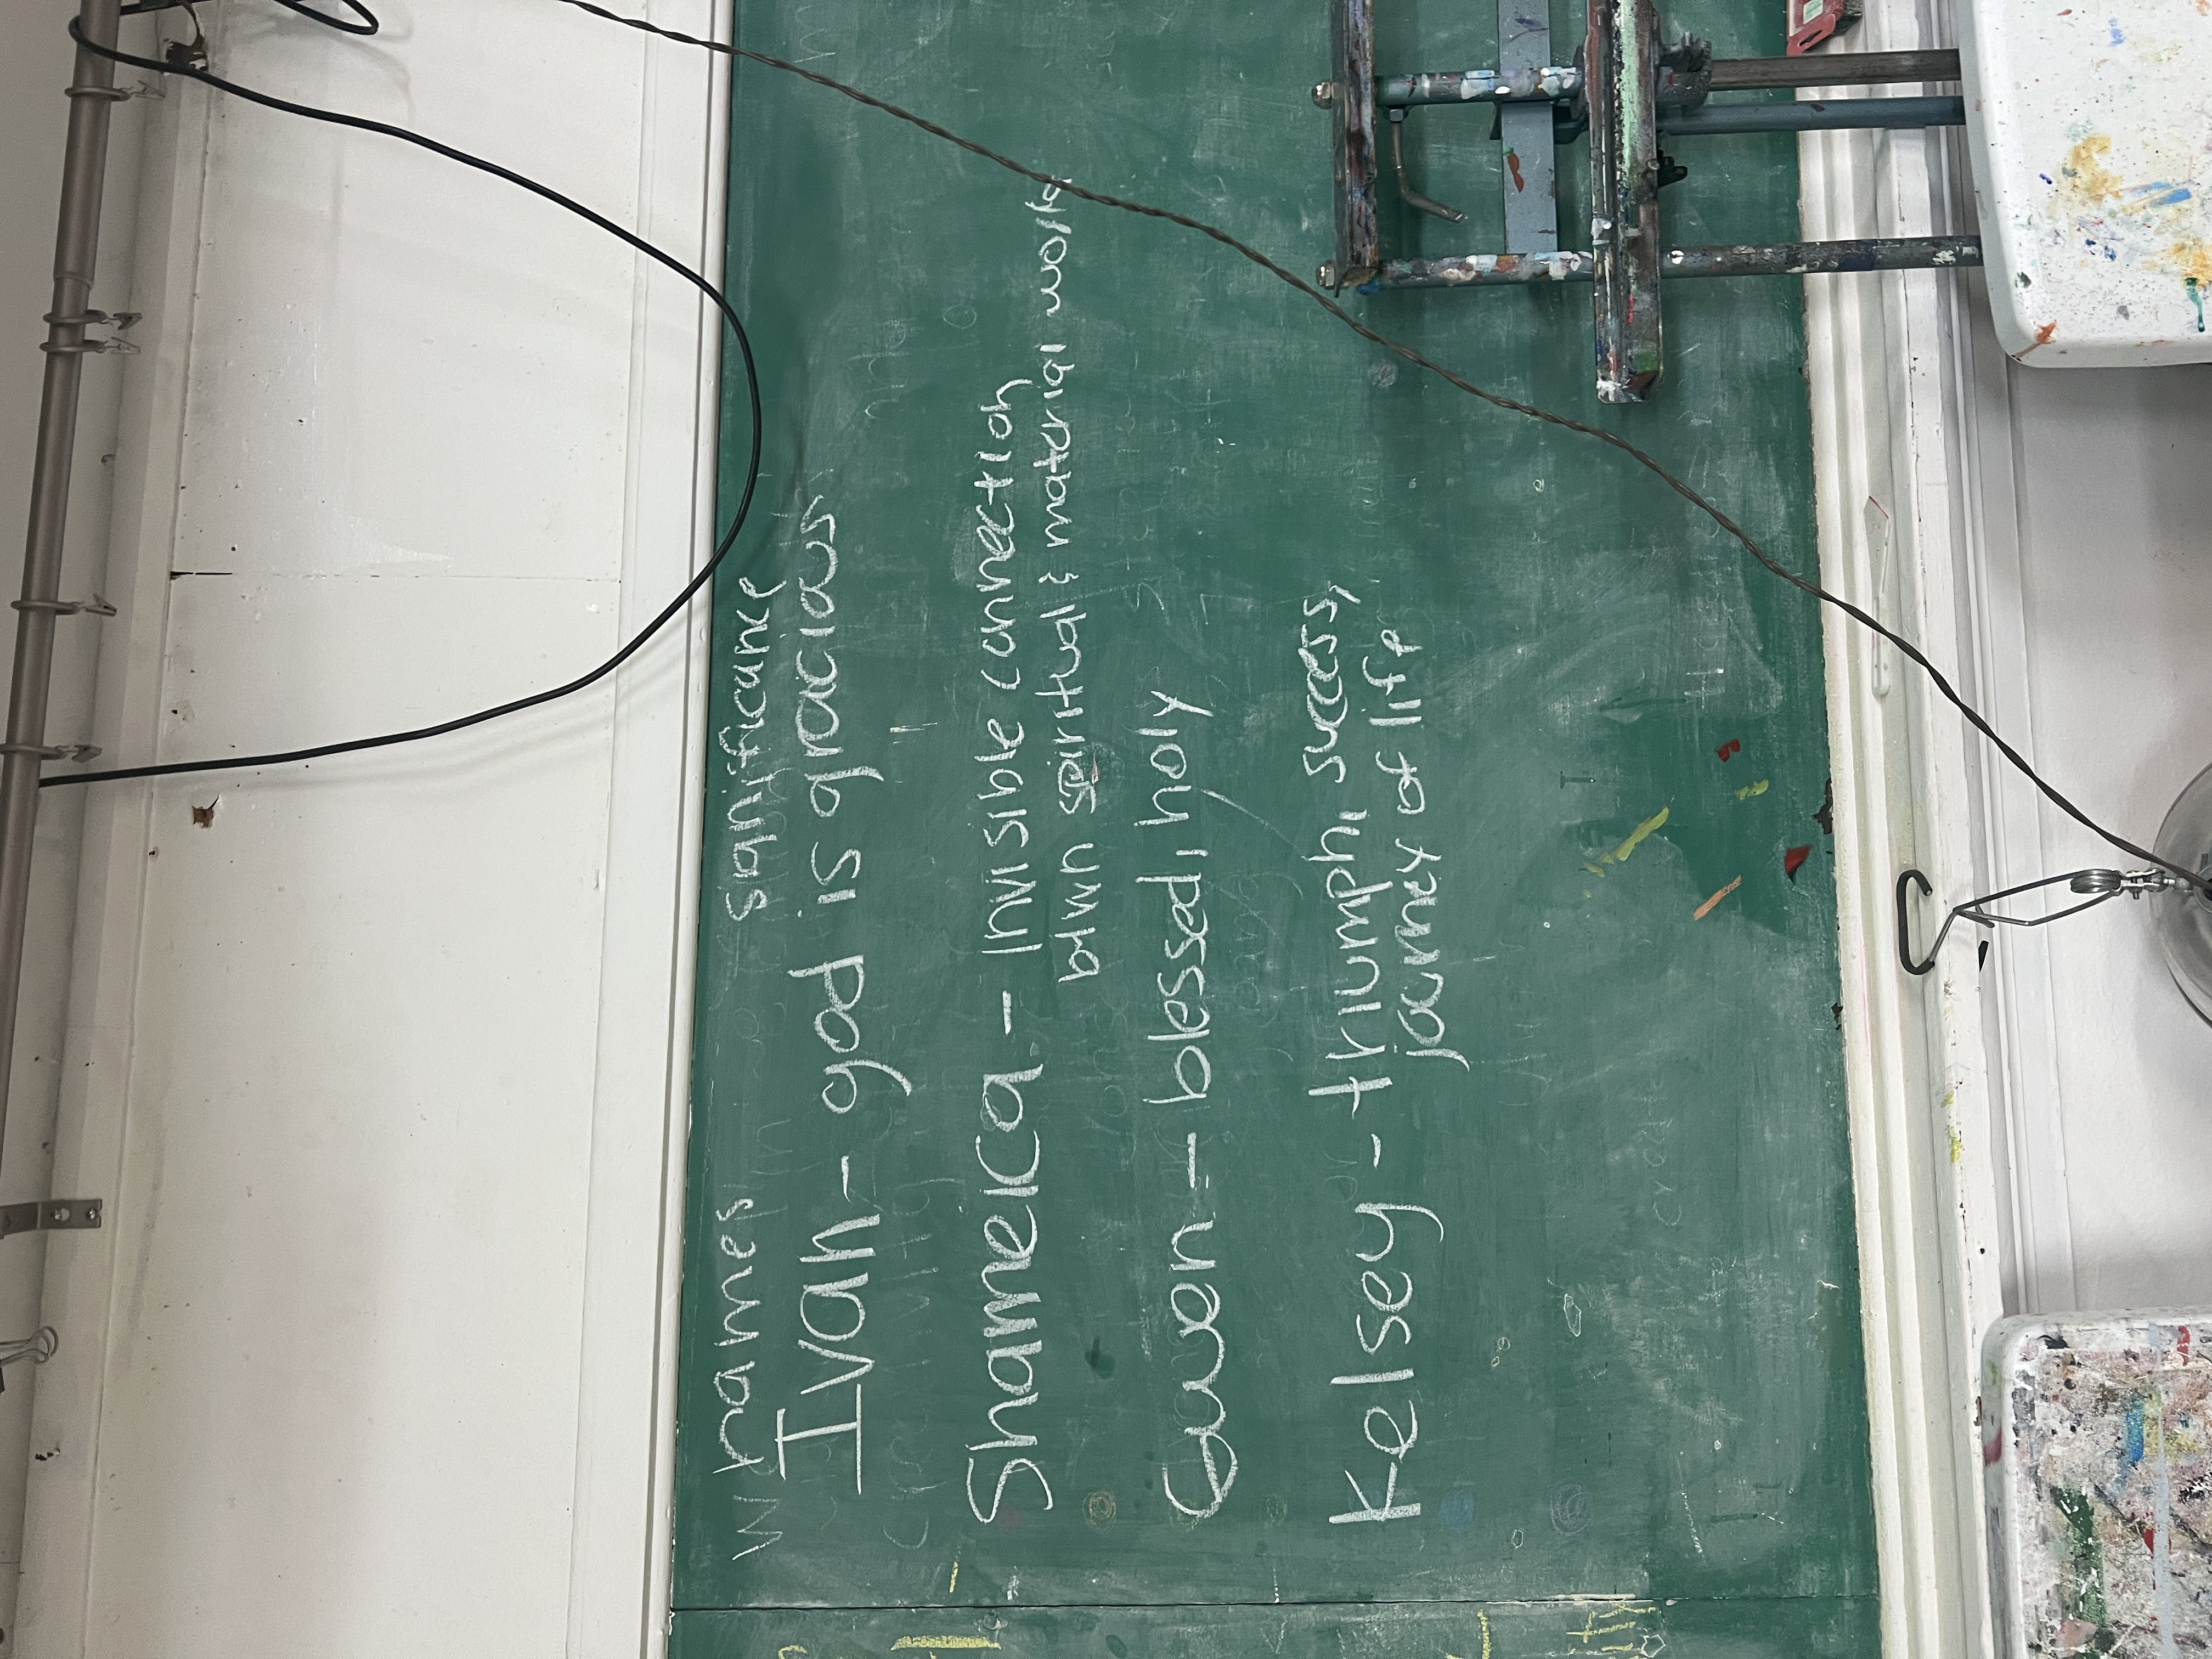 names significance
Ivan - god is gracious
Shameica - Invisible connection
btwn spiritual & material world
Gwen = blessed, holy
Kelsey - triumph, success,
journey of life